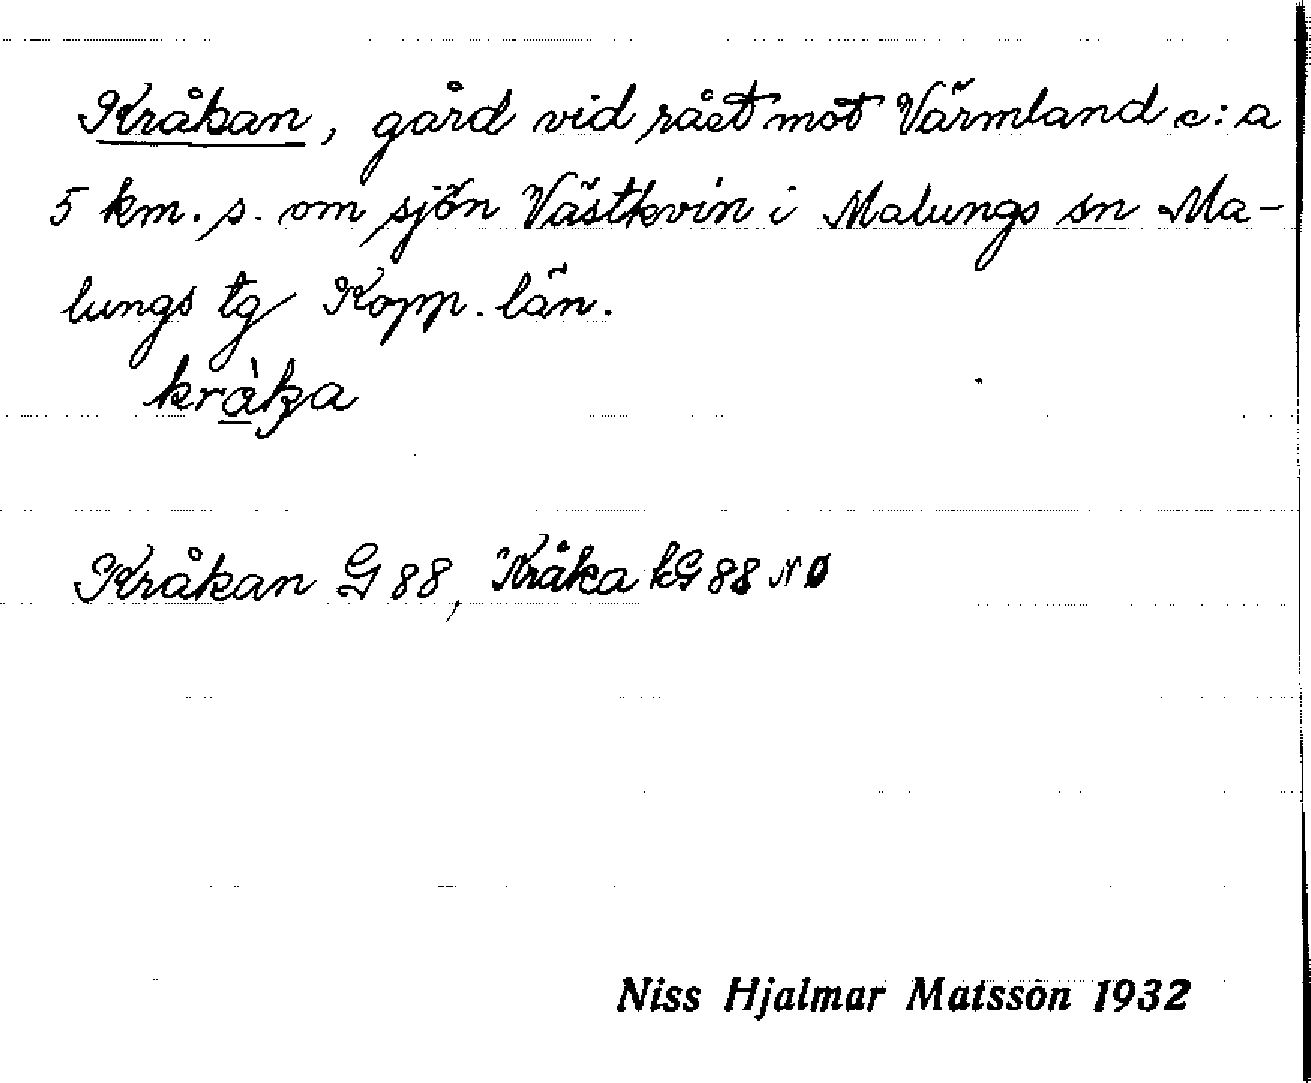 Kråkan, gård vid rået mot Värmland c:a
5 km. s. om sjön Västkvin i Malungs sn Ma-
lungs tg Kopp. län.
kràka
Kråkan G 88, Kråka kG 88 NO
Niss Hjalmar Matsson 1932